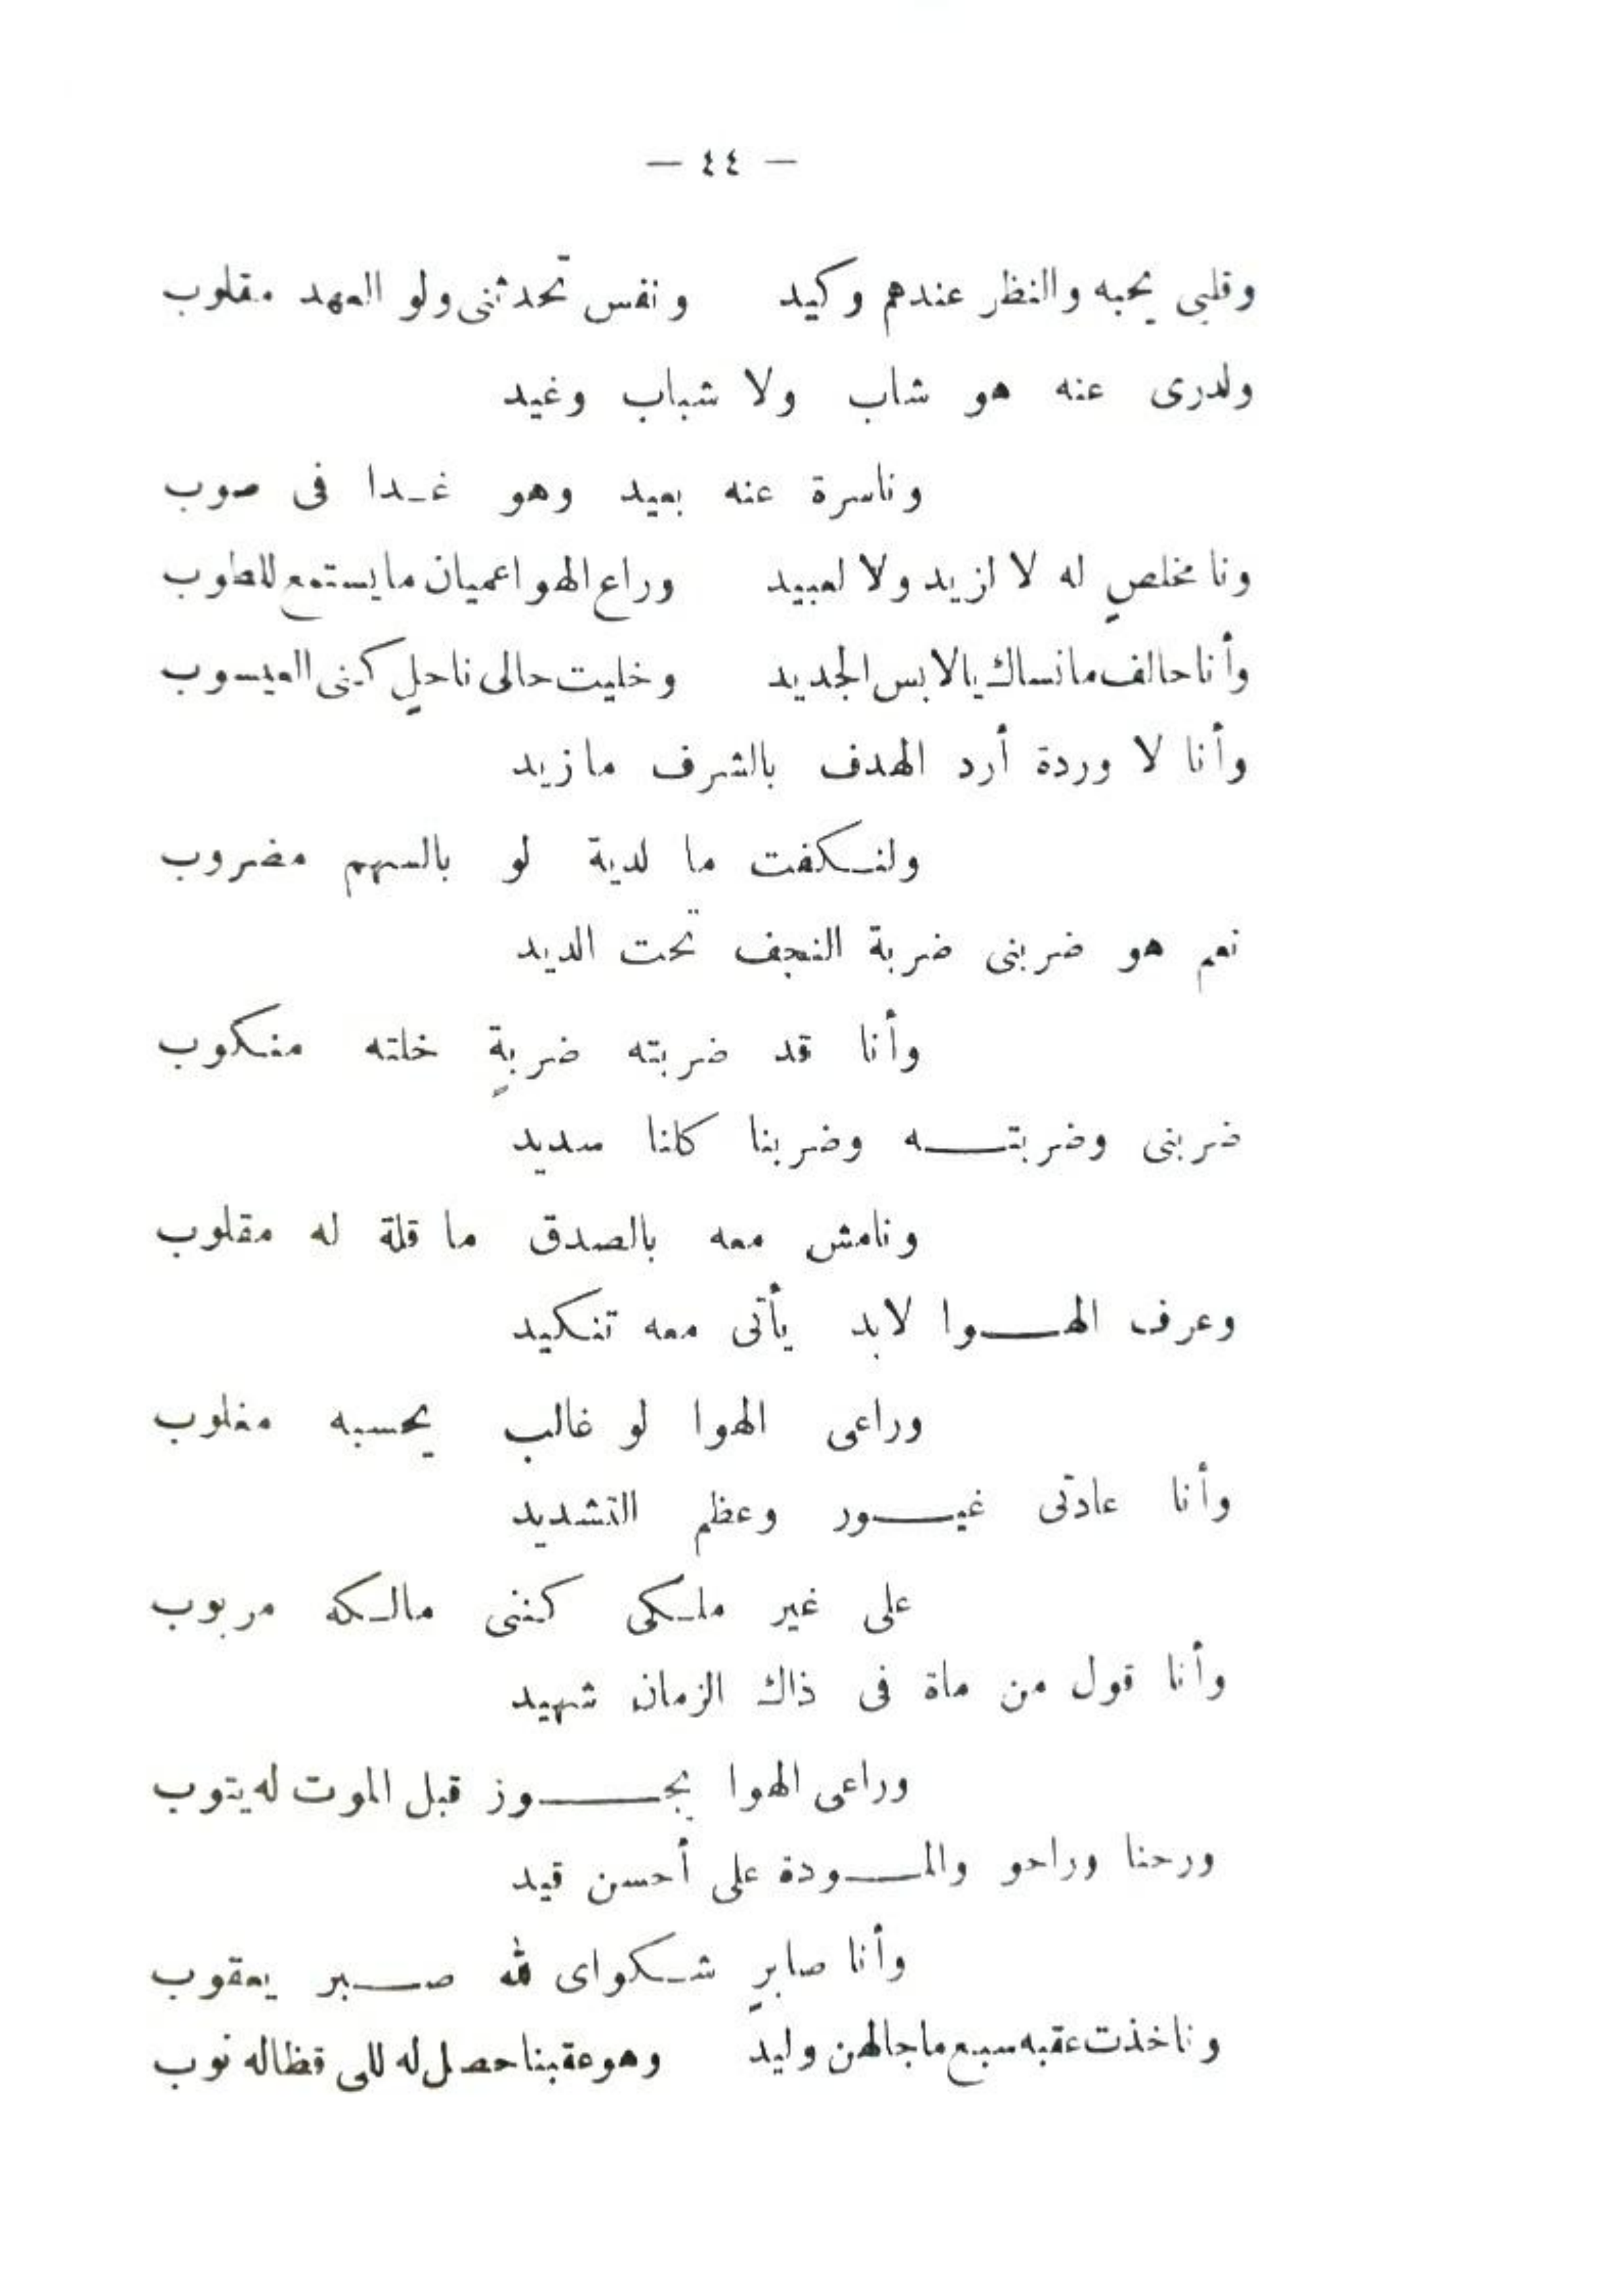 — ٤٤ —
وقلبى يحبه والنظر عندهم وكيد ونفس تحدثنى ولو العهد مقلوب
ولدرى عنه هو شاب ولا شباب وغيد
وناسرة عنه بعيد وهو غدا فى صوب
ونا مخلصٍ له لا ازيد ولا لعبيد وراع الهوا عميان ما يستمع للطوب
وأنا حالف ما نساك يالابس الجديد وخليت حالى ناحلٍ كنى العيسوب
وأنا لا وردة أرد الهدف بالشرف ما زيد
ولنكفت ما لدية لو بالسهم مضروب
نعم هو ضربنى ضربة النجف تحت الديد
وأنا قد ضربته ضربةٍ خلته منكوب
ضربنى وضربته وضربنا كلنا سديد
ونامش معه بالصدق ما قلة له مقلوب
وعرف الهوا لابد يأتى معه تنكيد
وراعى الهوا لو غالب يحسبه مغلوب
وأنا عادتى غيور وعظم التشديد
على غير ملكى كننى مالكه مربوب
وأنا قول من ماة فى ذاك الزمان شهيد
وراعى الهوا يجوز قبل الموت له يتوب
ورحنا وراحو والمودة على أحسن قيد
وأنا صابرٍ شكواى لله صبر يعقوب
ونا خذت عقبه سبع ما جالهن وليد وهو عقبنا حصل له للى قظاله نوب